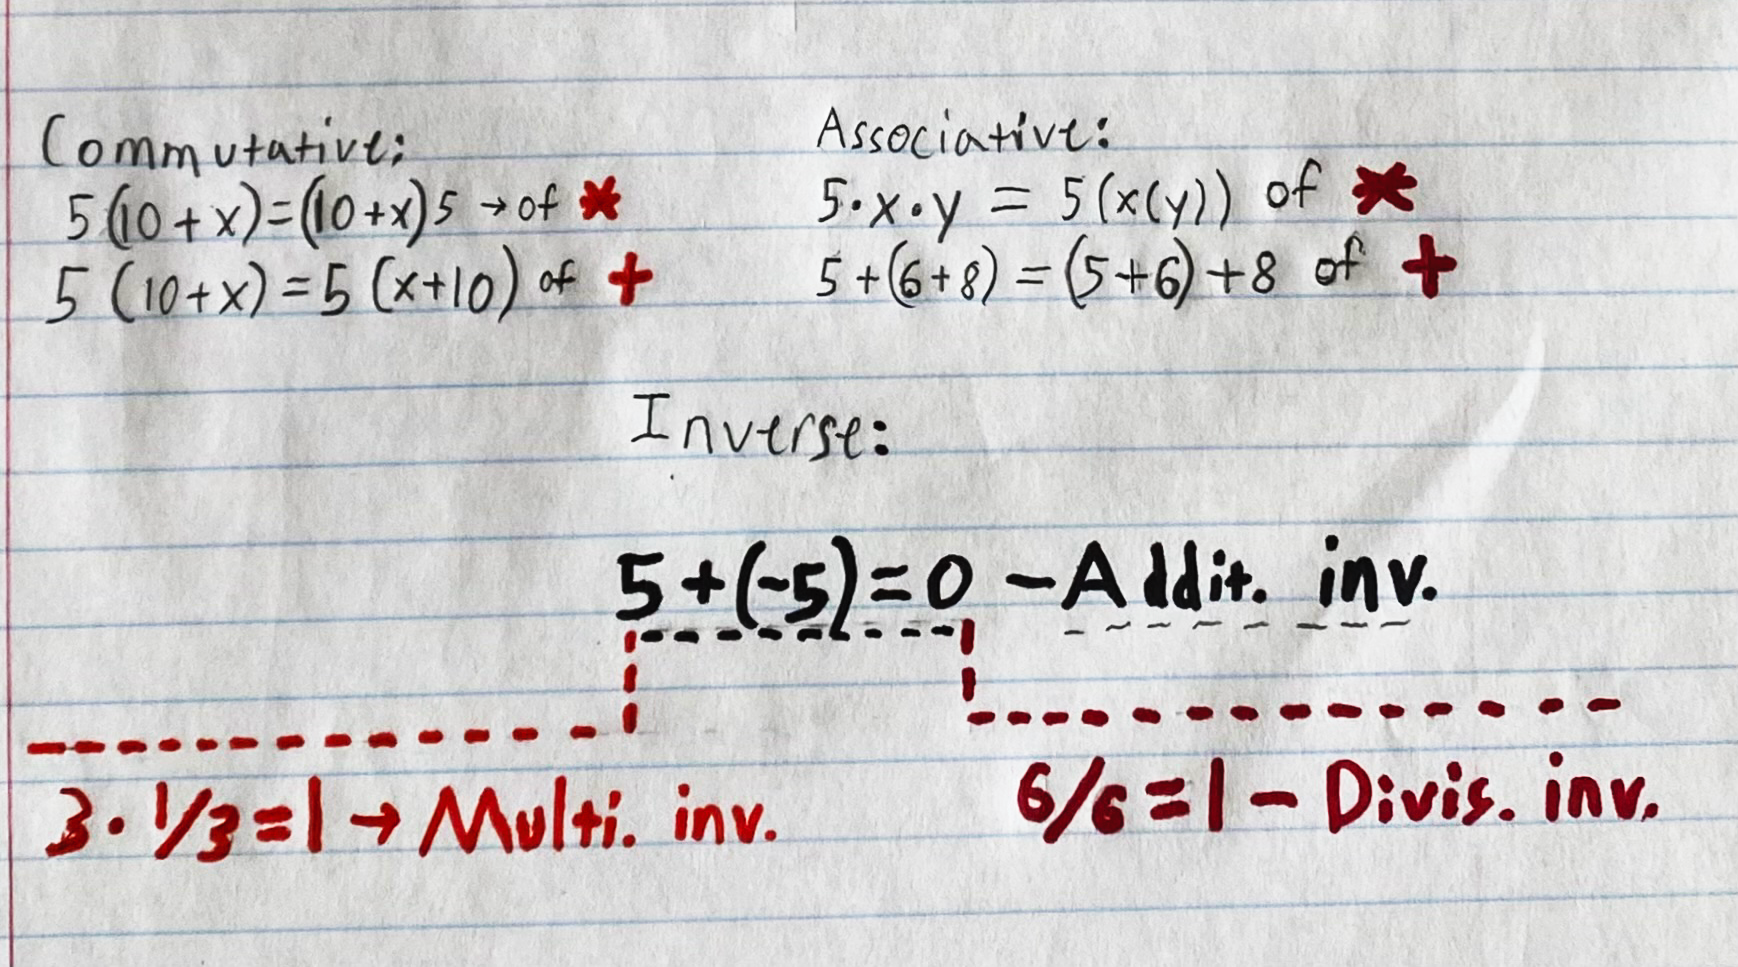 Commutative:
5(10+x)=(10+x)5 → of *
5(10+x)=5(x+10) of +
Associative:
5·x·y = 5(x(y)) of *
5+(6+8)=(5+6)+8 of +
Inverse:
5+(-5)=0 - Addit. inv.
3·1/3=1 → Multi. inv.
6/6=1 - Divis. inv.